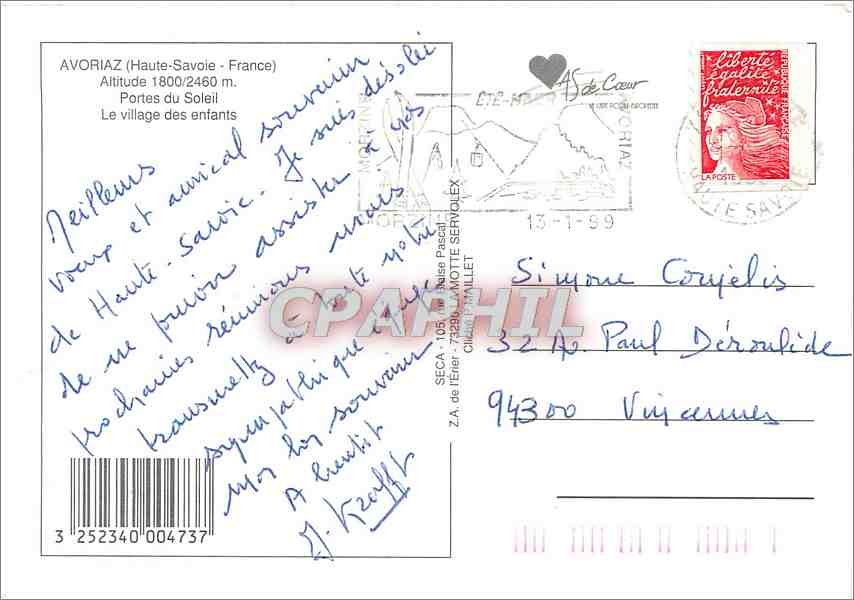 AVORIAZ (Haute-Savoie - France)
Altitude 1800/2460 m.
Portes du Soleil
Le village des enfants
Meilleurs
voeux et amical souvenir
de Haute-Savoie. Je suis désolée
de ne pouvoir assister à vos
prochaines réunions mais
transmettez à toute notre
sympathique équipe
mon bon souvenir
A bientôt
J. Krafft
3 252340 004737
SECA - 105, rue Blaise Pascal
Z.A. de l'Érier - 73290 LA MOTTE SERVOLEX
Cliché P. MAILLET
CPAPHIL
AS de Cœur
ÉTÉ-H
MORZINE
AVORIAZ
13-1-99
HAUTE SAVOIE
liberté
égalité
fraternité
RÉPUBLIQUE FRANÇAISE
LA POSTE
Simone Conjelis
32 Av. Paul Déroulède
94300 Vincennes